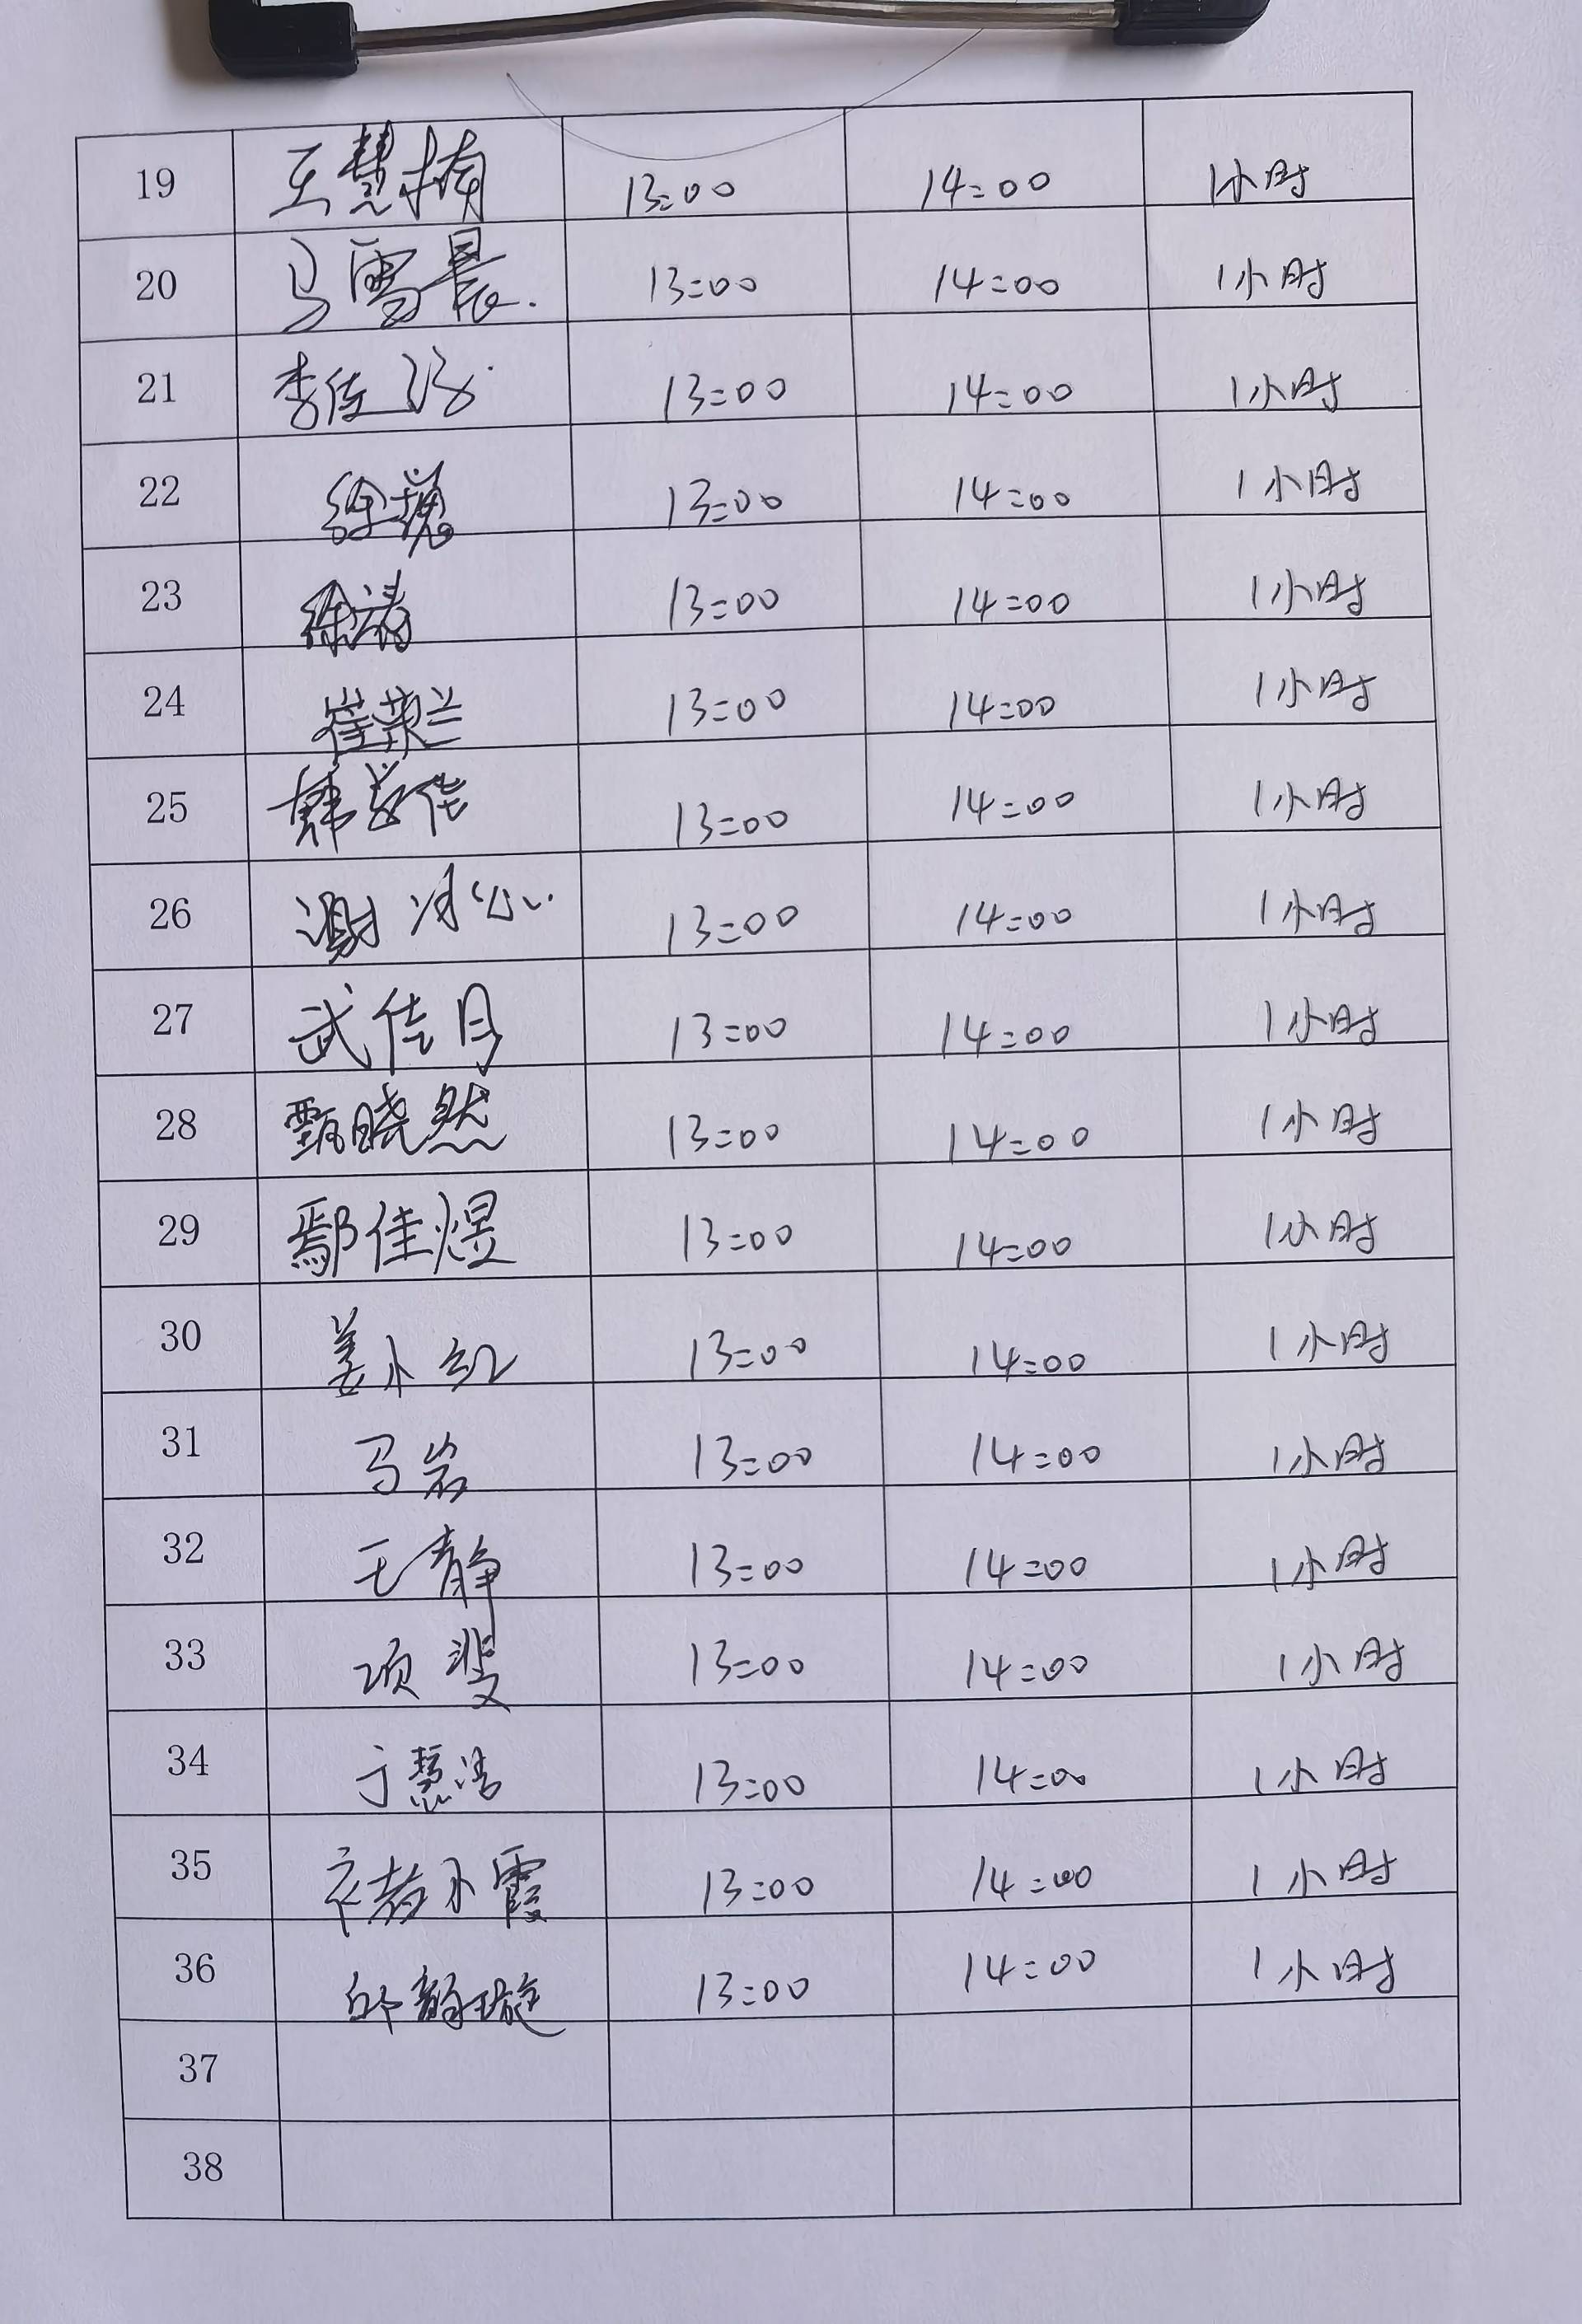 19 王慧楠 13:00 14:00 1小时
20 马雪晨 13:00 14:00 1小时
21 李佳 13:00 14:00 1小时
22 徐 13:00 14:00 1小时
23 徐 13:00 14:00 1小时
24 崔荣兰 13:00 14:00 1小时
25 韩 佳 13:00 14:00 1小时
26 谢 13:00 14:00 1小时
27 武佳月 13:00 14:00 1小时
28 甄晓然 13:00 14:00 1小时
29 鄢佳煜 13:00 14:00 1小时
30 姜小红 13:00 14:00 1小时
31 马岩 13:00 14:00 1小时
32 王静 13:00 14:00 1小时
33 项斐 13:00 14:00 1小时
34 于慧洁 13:00 14:00 1小时
35 小霞 13:00 14:00 1小时
36 邱韵璇 13:00 14:00 1小时
37
38